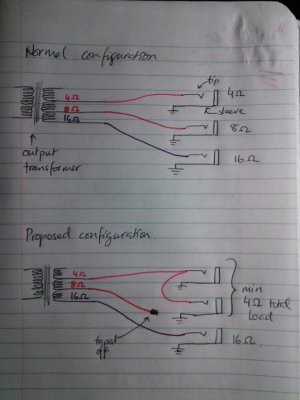 Normal configuration
tip
4Ω
4Ω
8Ω
16Ω
sleeve
8Ω
output
transformer
16Ω
Proposed configuration
4Ω
8Ω
16Ω
min
4Ω total
load
taped
off
16Ω